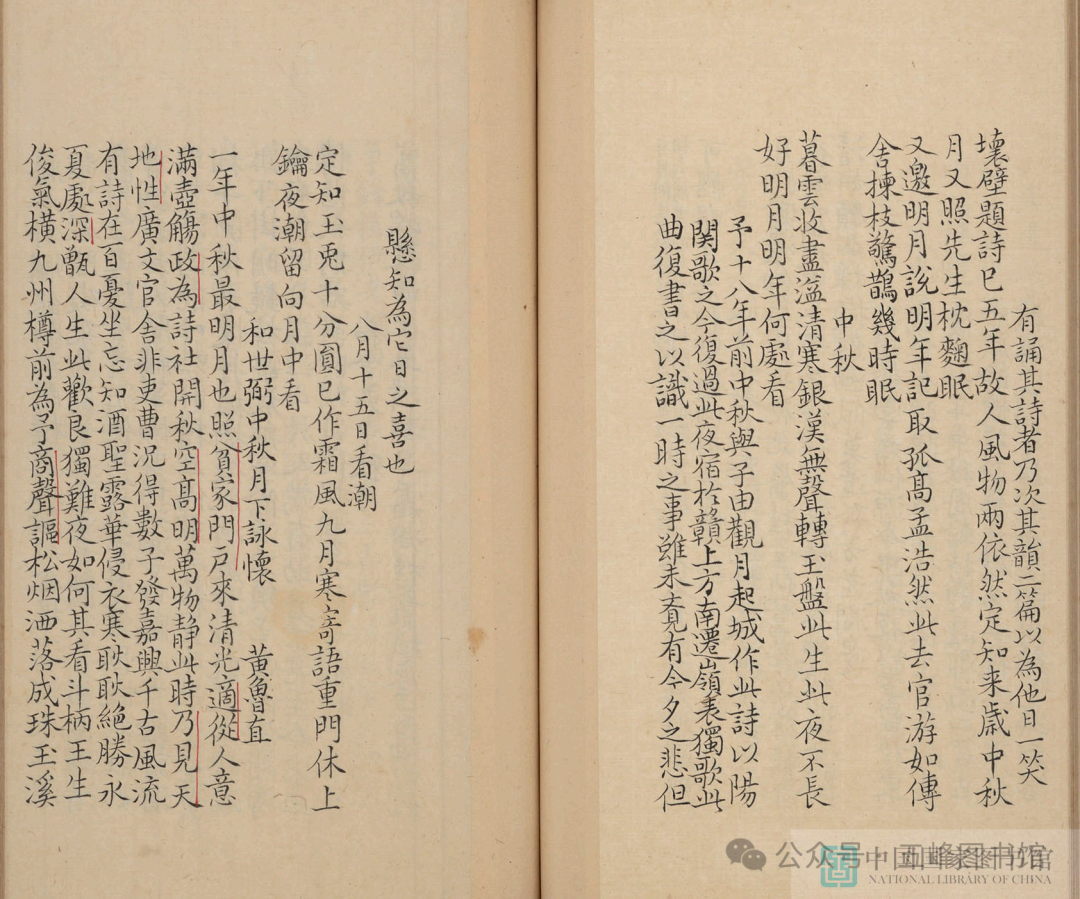 有誦其詩者乃次其韻二篇以為他日一笑
壞壁題詩已五年故人風物兩依然定知来歲中秋
月又照先生枕麴眠
又邀明月說明年記取孤髙孟浩然此去官游如傳
舍揀枝驚鵲幾時眠
中秋
暮雲收盡溢清寒銀漢無聲轉玉盤此生此夜不長
好明月明年何處看
予十八年前中秋與子由觀月起城作此詩以陽
関歌之今復過此夜宿於贛上方南遷嶺表獨歌此
曲復書之以識一時之事雖未覔有今夕之悲但
懸知為它日之喜也
八月十五日看潮
定知玉兎十分圎已作霜風九月寒寄語重門休上
鑰夜潮留向月中看
和世弼中秋月下詠懷 黄魯直
一年中秋最明月也照貧家門戶來清光適從人意
滿壺觴政為詩社開秋空髙明萬物静此時乃見天
地性廣文官舎非吏曹況得數子發嘉興千古風流
有詩在百憂坐忘知酒聖露華侵衣寒耿耿絶勝永
夏處深甑人生此歡良獨難夜如何其看斗柄王生
俊氣橫九州樽前為予商聲謳松烟洒落成珠玉溪
公众号·中国国家图书馆
NATIONAL LIBRARY OF CHINA